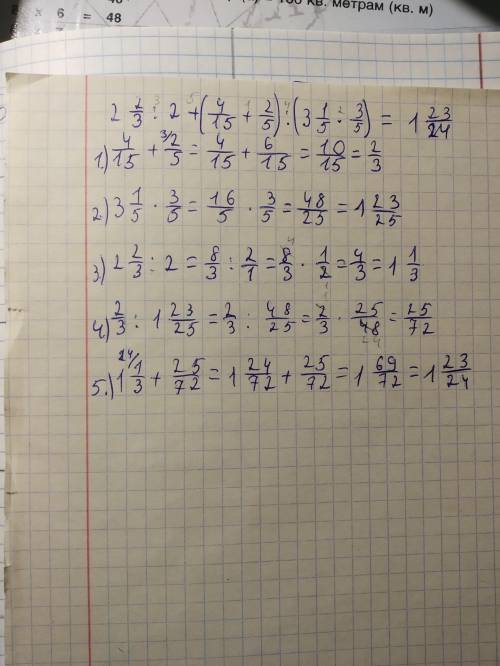 х 6 = 48
кв. метрам (кв. м)
2 2/3 : 2 + (4/15 + 2/5) : (3 1/5 · 3/5) = 1 23/24
1.) 4/15 + 3/2/5 = 4/15 + 6/15 = 10/15 = 2/3
2) 3 1/5 · 3/5 = 16/5 · 3/5 = 48/25 = 1 23/25
3) 2 2/3 : 2 = 8/3 : 2/1 = 8/3 · 1/2 = 4/3 = 1 1/3
4.) 2/3 : 1 23/25 = 2/3 : 48/25 = 2/3 · 25/48 = 25/72
5.) 1 24/1/3 + 25/72 = 1 24/72 + 25/72 = 1 69/72 = 1 23/24